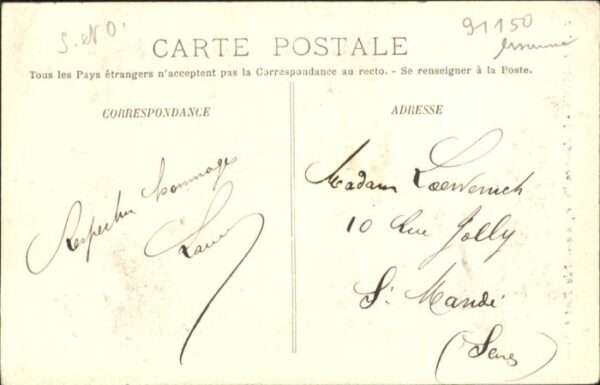 S. et O.
91150
Essonne
CARTE POSTALE
Tous les Pays étrangers n'acceptent pas la Correspondance au recto. - Se renseigner à la Poste.
CORRESPONDANCE
Respectueux hommages
ADRESSE
Madame
10 Rue Jolly
St Mandé
(Seine)